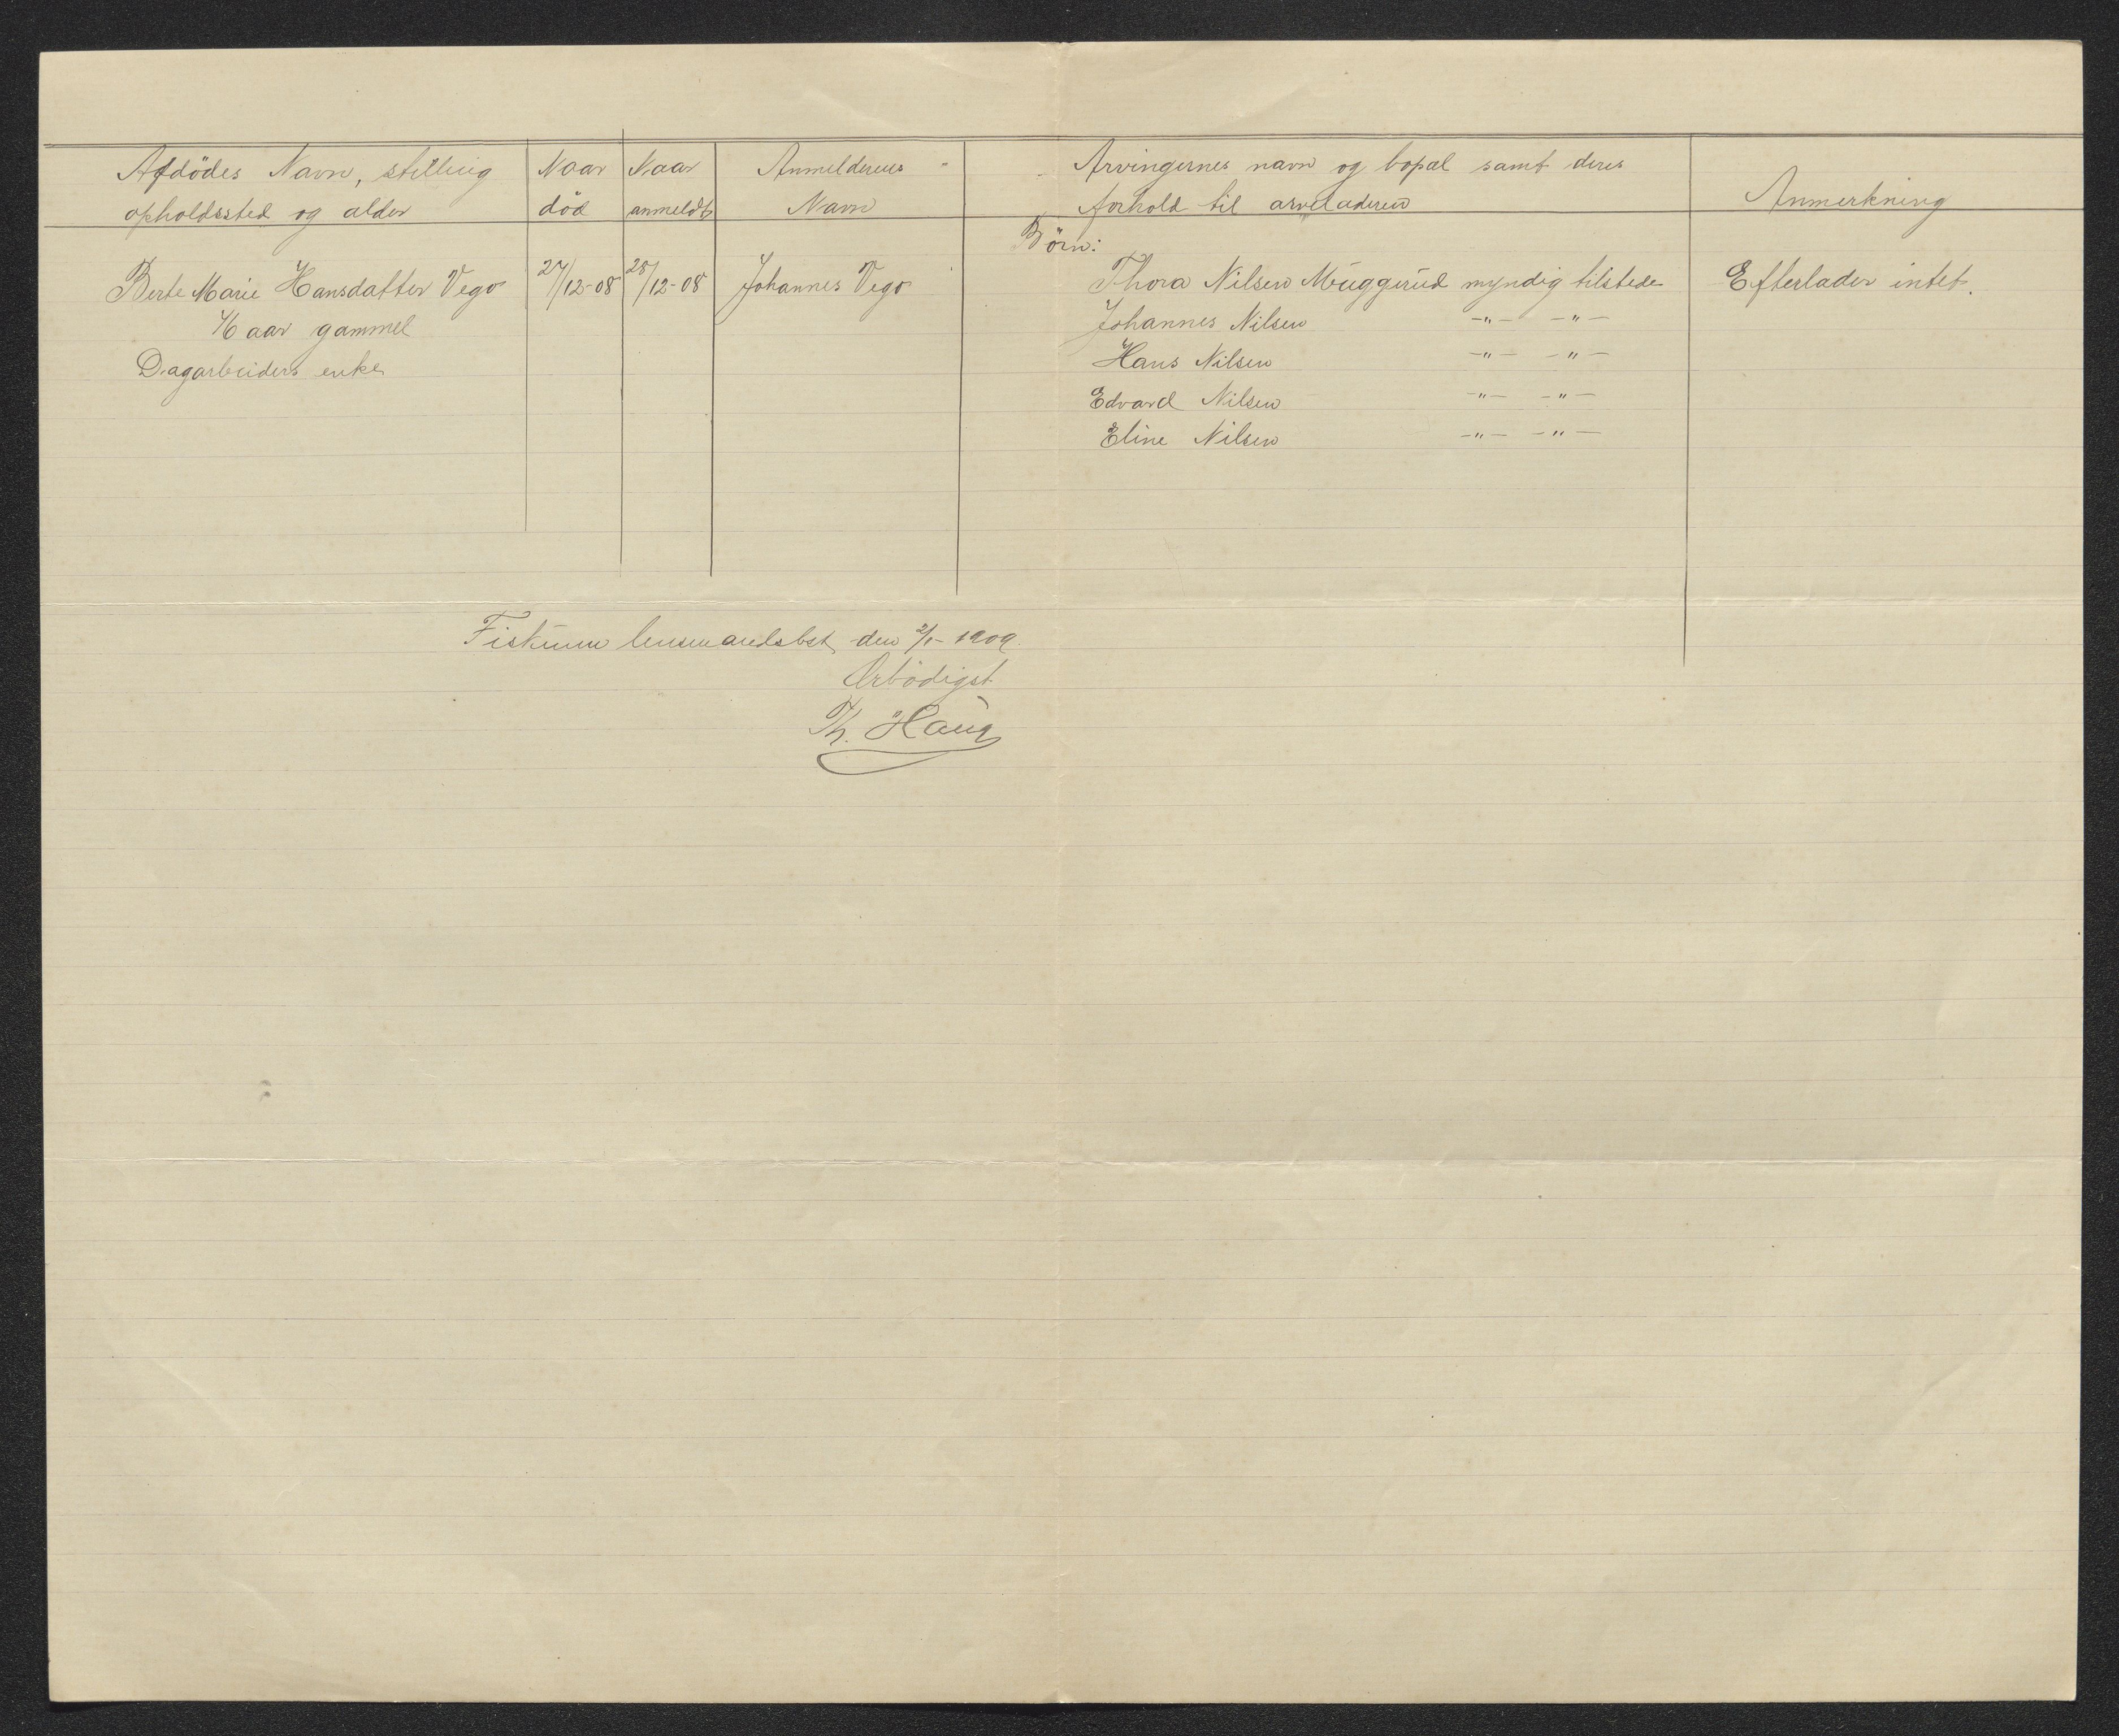 Afdödes Navn, stilling
opholdssted og alder
Naar
död
Naar
anmeldt
Anmelderens
Navn
Arvingernes navn og bopæl samt deres
forhold til arveladeren
Anmerkning
Berte Marie Hansdatter Vego
aar gammel
Dagarbeiders enke
27/12-08
28/12-08
Johannes Vego
Börn:
Thora Nilsen Muggerud myndig tilstede
Johannes Nilsen -"- -"-
Hans Nilsen -"- -"-
Edvard Nilsen -"- -"-
Eline Nilsen -"- -"-
Efterlader intet.
Fiskum lensmandsbst. den 2/1-1909.
Ærbödigst
Th. Haug